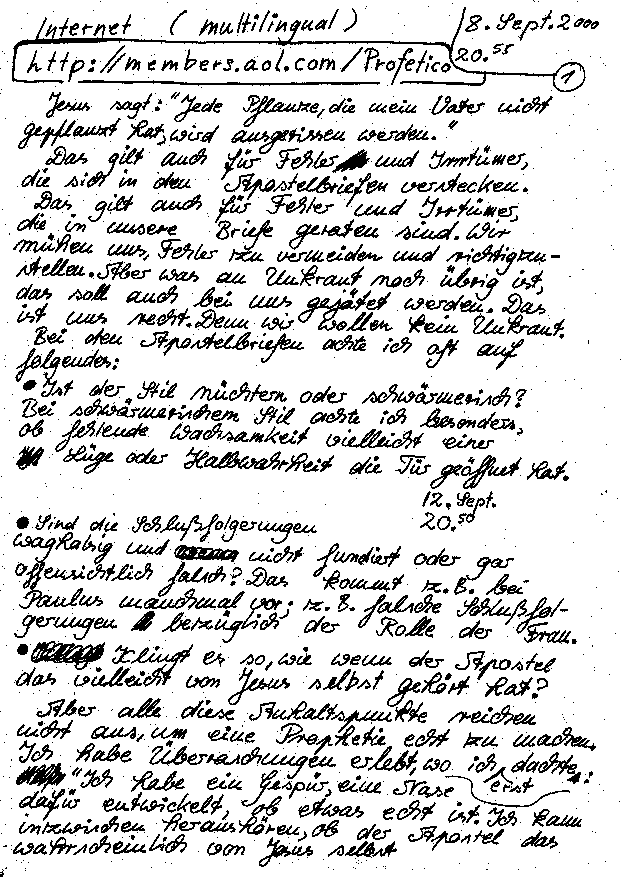 Internet (multilingual)
8. Sept. 2000
http://members.aol.com/Profetico
20.55
1
Jesus sagt: "Jede Pflanze, die mein Vater nicht
gepflanzt hat, wird ausgerissen werden."
Das gilt auch für Fehler und Irrtümer,
die sich in den Apostelbriefen verstecken.
Das gilt auch für Fehler und Irrtümer,
die in unsere Briefe geraten sind. Wir
mühen uns, Fehler zu vermeiden und richtigzu-
stellen. Aber was an Unkraut noch übrig ist,
das soll auch bei uns gejätet werden. Das
ist uns recht. Denn wir wollen kein Unkraut.
Bei den Apostelbriefen achte ich oft auf
folgendes:
• Ist der Stil nüchtern oder schwärmerisch?
Bei schwärmerischem Stil achte ich besonders,
ob fehlende Wachsamkeit vielleicht einer
Lüge oder Halbwahrheit die Tür geöffnet hat.
12. Sept.
20.50
• Sind die Schlußfolgerungen
waghalsig und nicht fundiert oder gar
offensichtlich falsch? Das kommt z.B. bei
Paulus manchmal vor; z.B. falsche Schlußfol-
gerungen bezüglich der Rolle der Frau.
• Klingt es so, wie wenn der Apostel
das vielleicht von Jesus selbst gehört hat?
Aber alle diese Anhaltspunkte reichen
nicht aus, um eine Prophetie echt zu machen.
Ich habe Überraschungen erlebt, wo ich erst dachte:
"Ich habe ein Gespür, eine Nase
dafür entwickelt, ob etwas echt ist. Ich kann
inzwischen heraushören, ob der Apostel das
wahrscheinlich von Jesus selbst